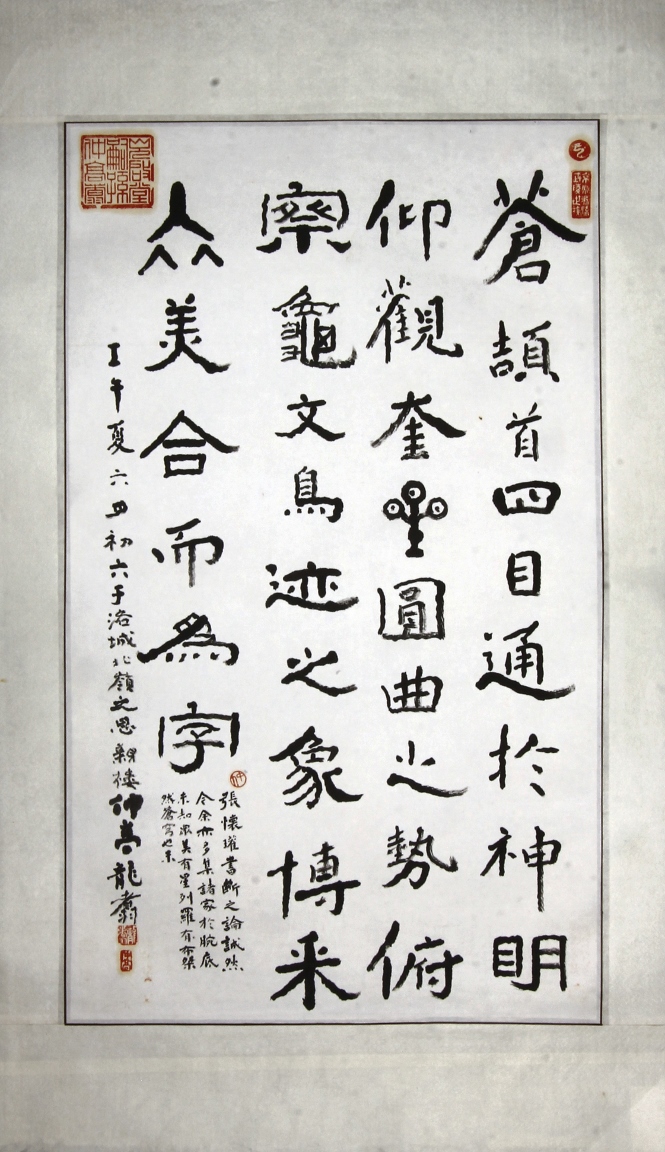 蒼頡首四目通於神明
仰觀奎星圓曲之勢俯
察龜文鳥迹之象博采
众美合而為字
張懷瓘書斷之論誠然
今余亦多集諸家於腕底
未知眾美有星列羅有布
壬午夏六月初六于洛城北嶺文思
樓仲高龍